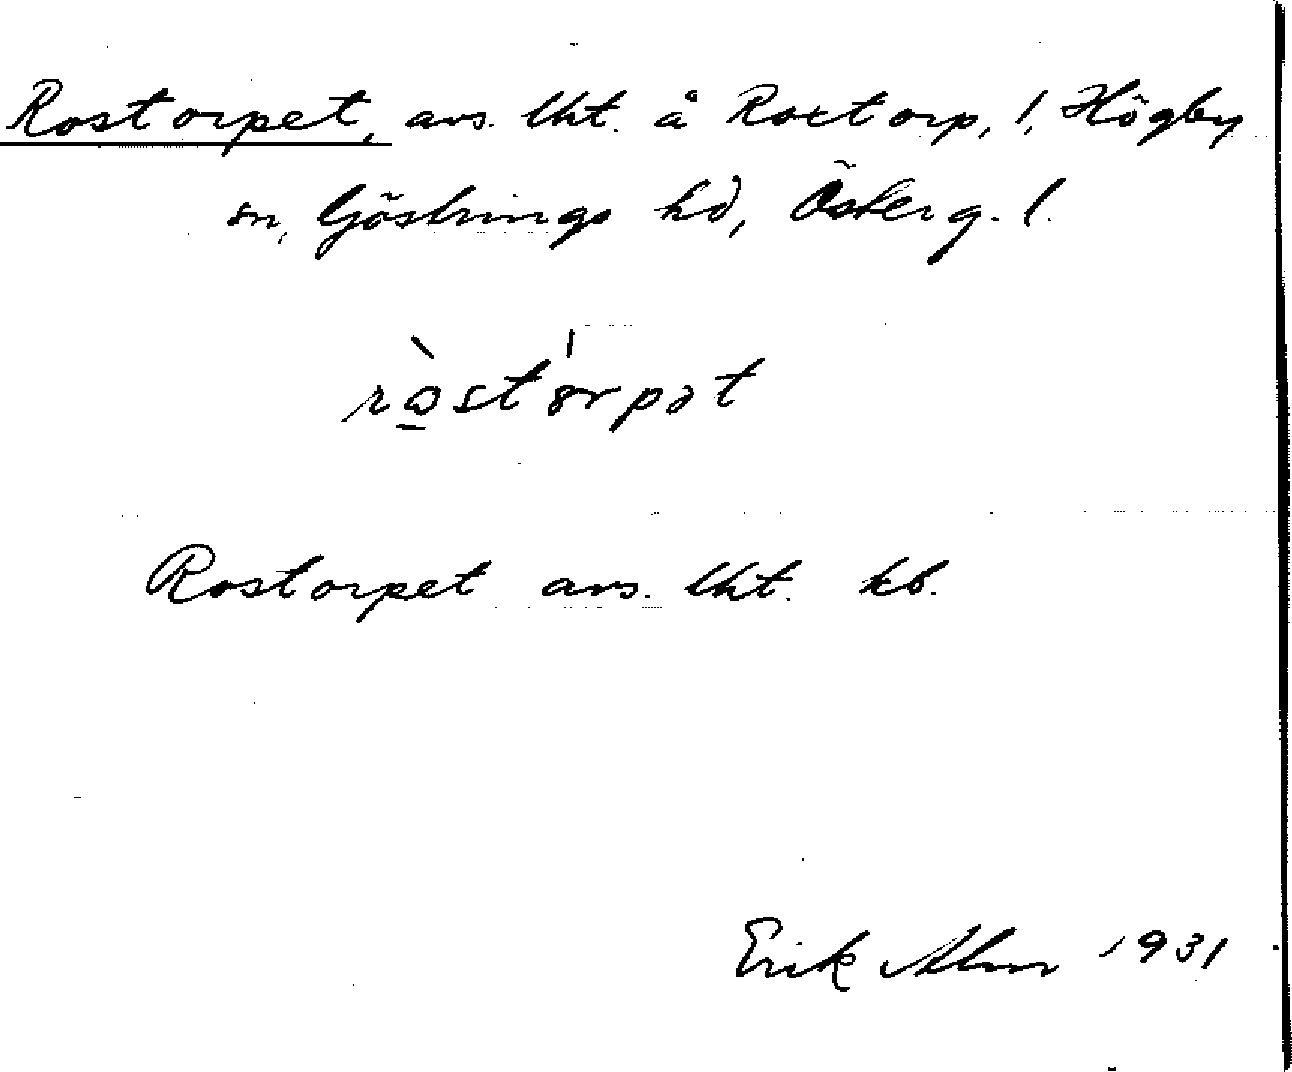 Rostorpet, avs. lht. å Rostorp, 1, Högby
sn, Göstrings hd, Österg. l.
ròstórpət
Rostorpet avs. lht. kb.
Erik Alm 1931